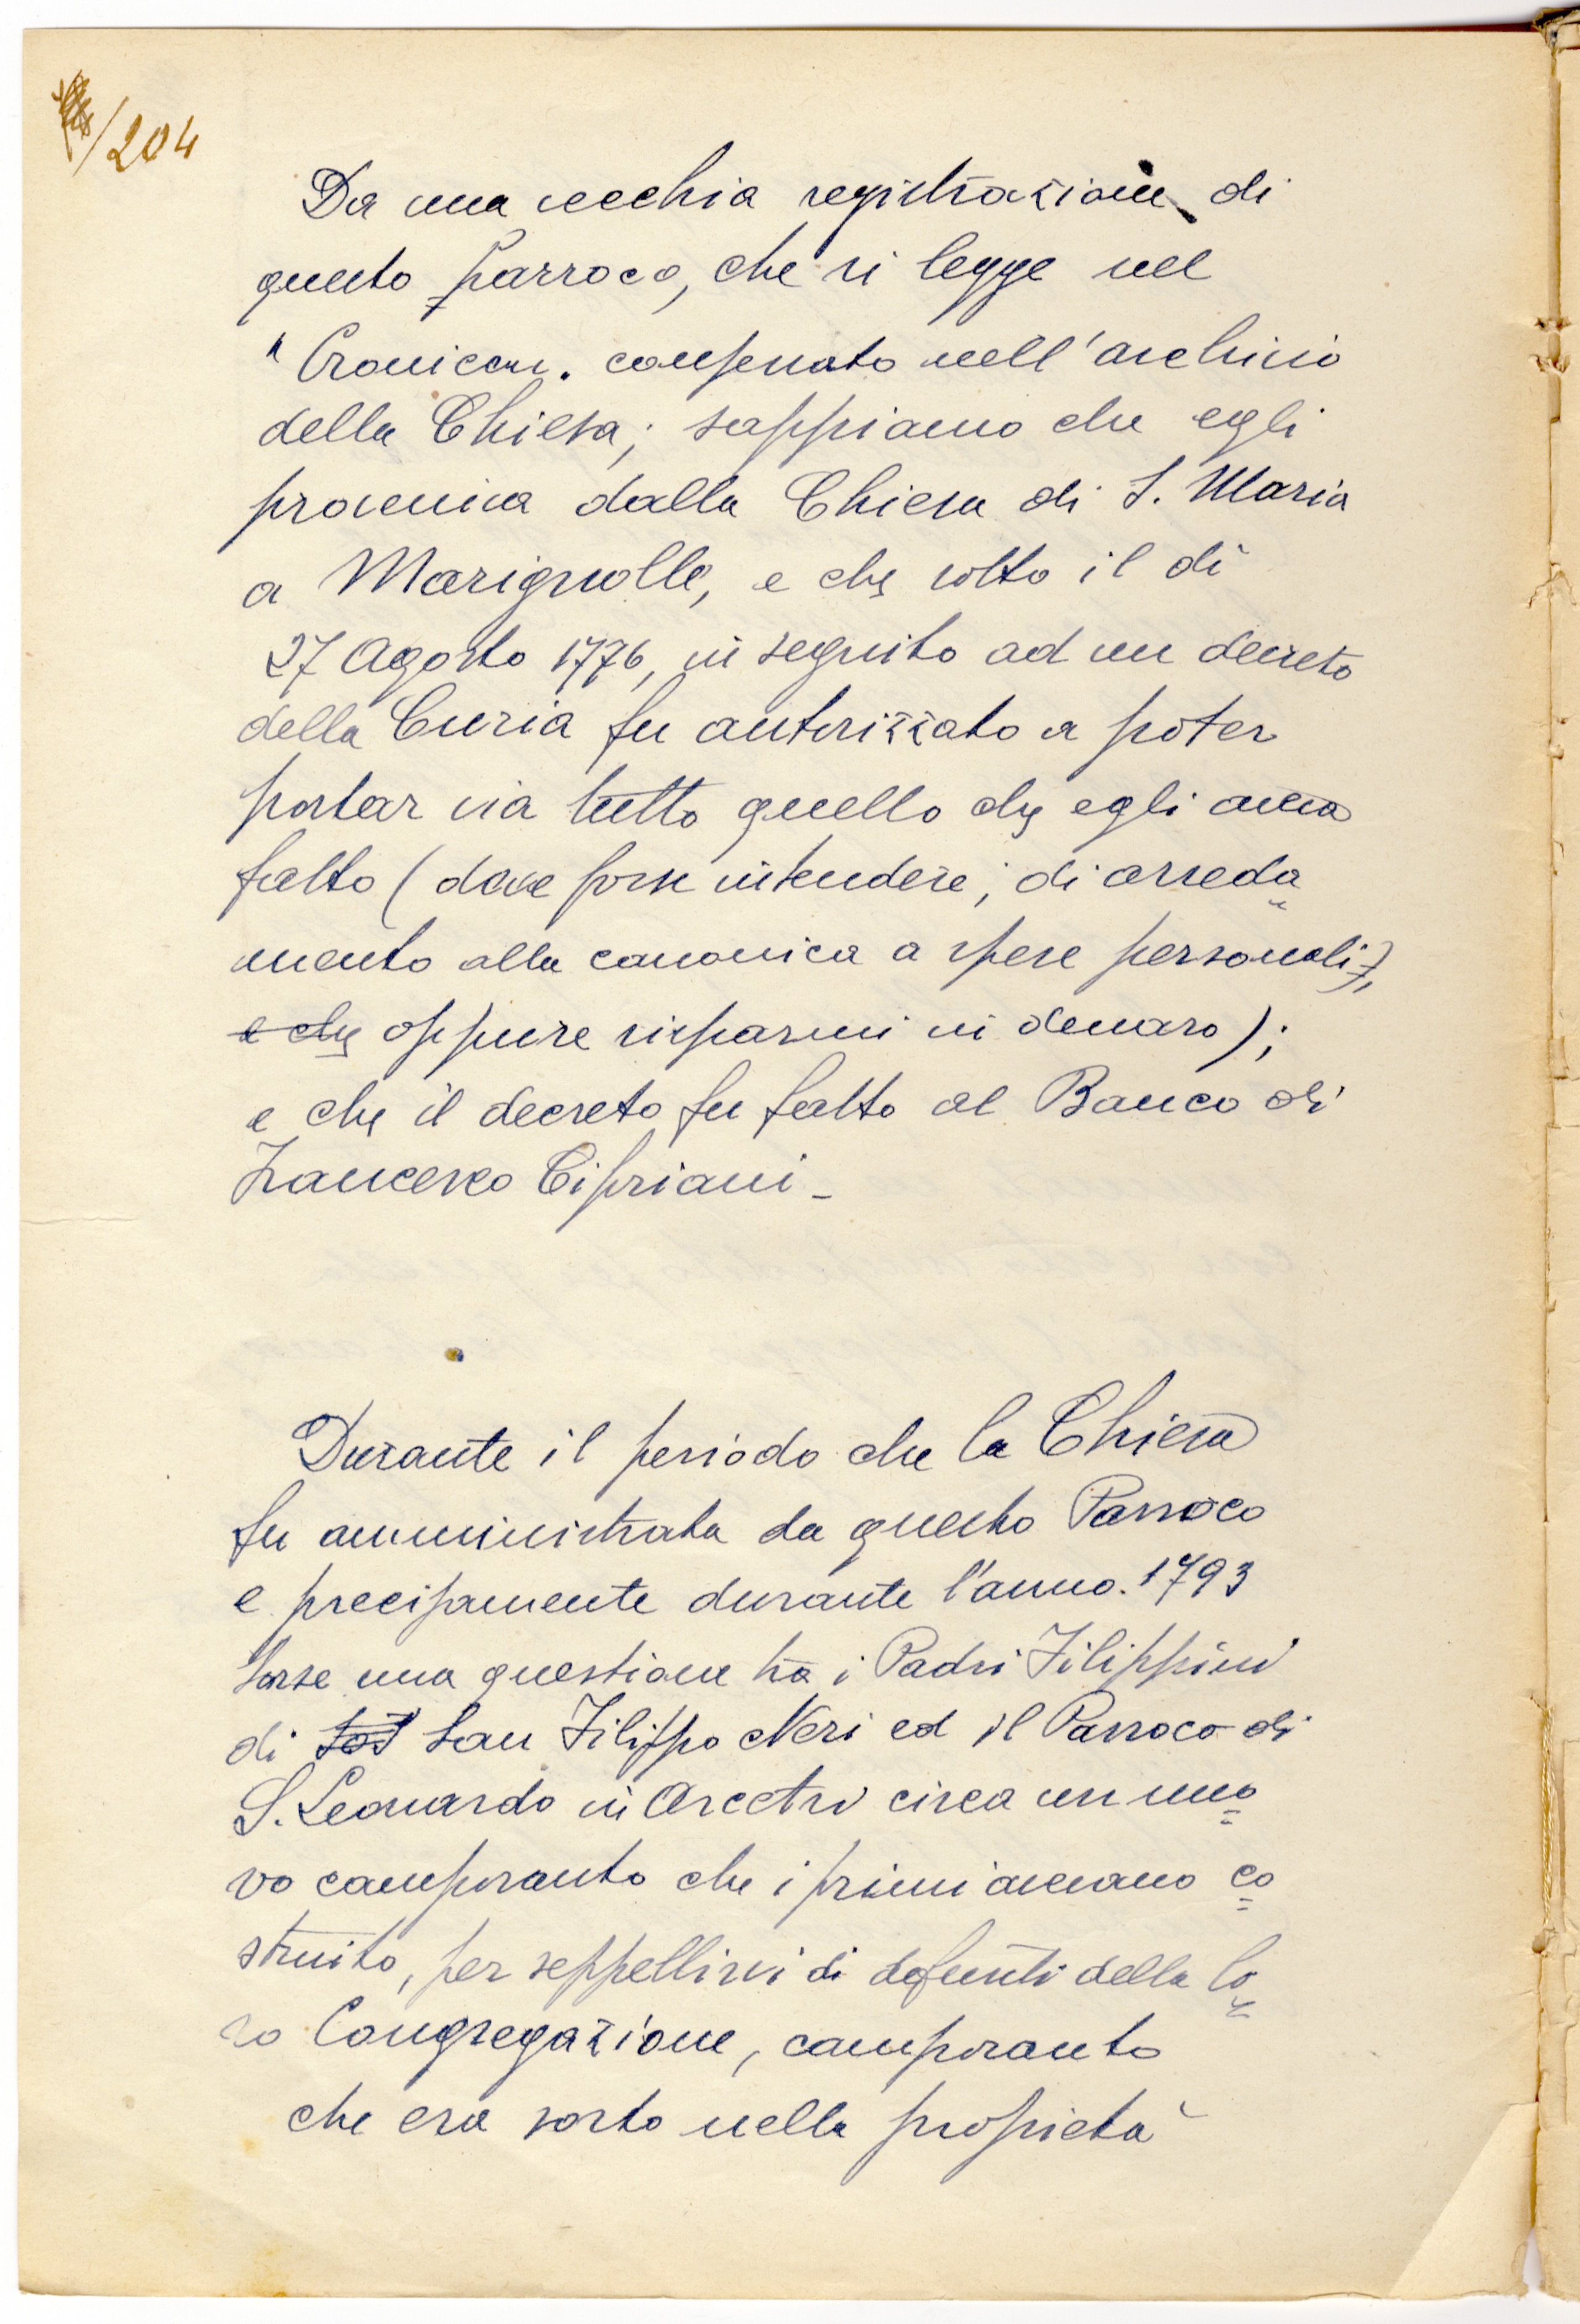 /204
Da una vecchia registrazione di
questo Parroco, che si legge nel
"Cronicon. conservato nell'archivio
della Chiesa; sappiamo che egli
proveniva dalla Chiesa di S. Maria
a Marignolle, e che sotto il dì
27 Agosto 1776, in seguito ad un decreto
della Curia fu autorizzato a poter
portar via tutto quello che egli aveva
fatto (deve forse intendere; di arreda
mento alla canonica a spese personali),
e che oppure risparmi in denaro);
e che il decreto fu fatto al Banco di
Francesco Cipriani -
Durante il periodo che la Chiesa
fu amministrata da questo Parroco
e precisamente durante l'anno. 1793
sorse una questione tra i Padri Filippini
di San Filippo Neri ed il Parroco di
S. Leonardo in Arcetri circa un nuo=
vo camposanto che i primi avevano co=
struito, per seppellirvi di defunti della lo=
ro Congregazione, camposanto
che era sorto nella propietà